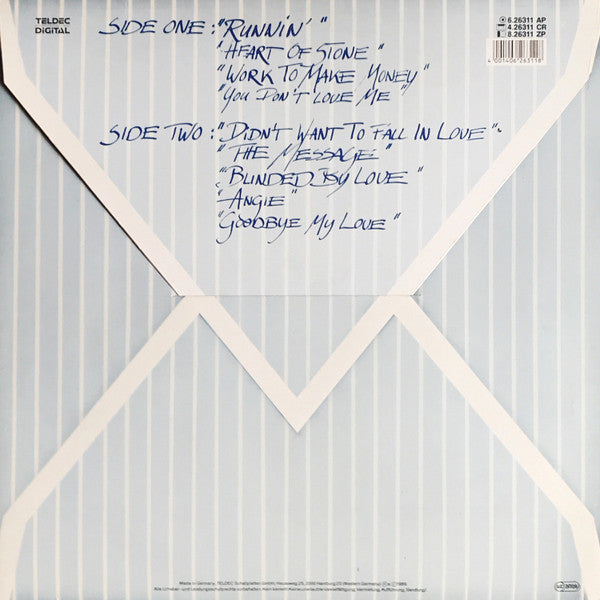 TELDEC
DIGITAL
SIDE ONE: "RUNNIN'"
"HEART OF STONE"
"WORK TO MAKE MONEY"
"YOU DON'T LOVE ME"
SIDE TWO: "DIDN'T WANT TO FALL IN LOVE"
"THE MESSAGE"
"BLINDED BY LOVE"
"ANGIE"
"GOODBYE MY LOVE"
6.26311 AP
4.26311 CR
8.26311 ZP
4 001406 263118
Made in Germany, TELDEC Schallplatten GmbH, Heussweg 25, 2000 Hamburg 20 (Western Germany) 1986